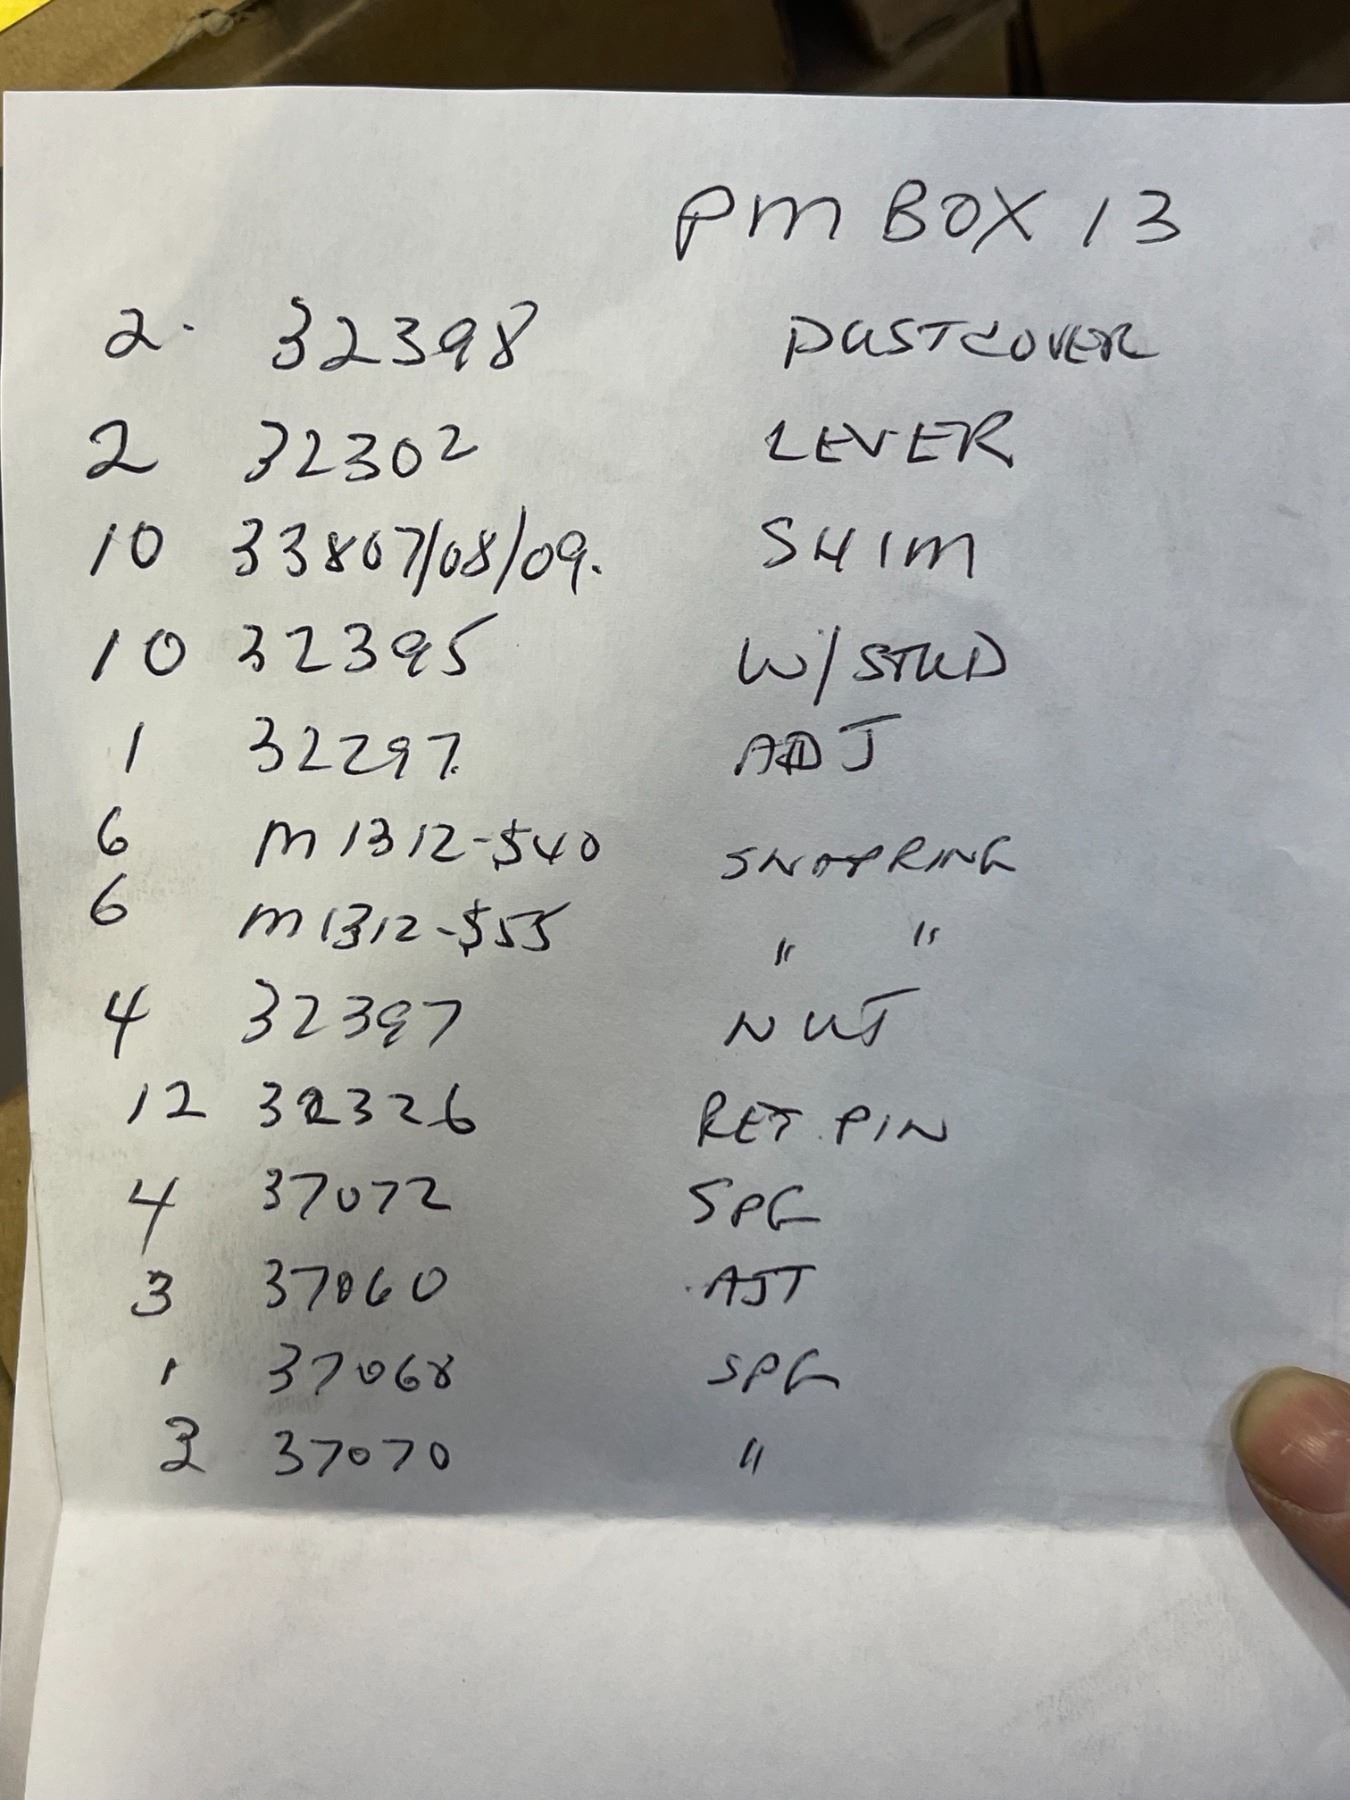 PM BOX 13
2. 32398 DUSTCOVER
2 32302 LEVER
10 33807/08/09. SHIM
10 32395 W/STUD
1 32297. ADJ
6 M1312-$40 SNAPRING
6 M1312-$55 " "
4 32397 NUT
12 32326 RET. PIN
4 37072 SPG
3 37060 AJT
1 37068 SPG
3 37070 "